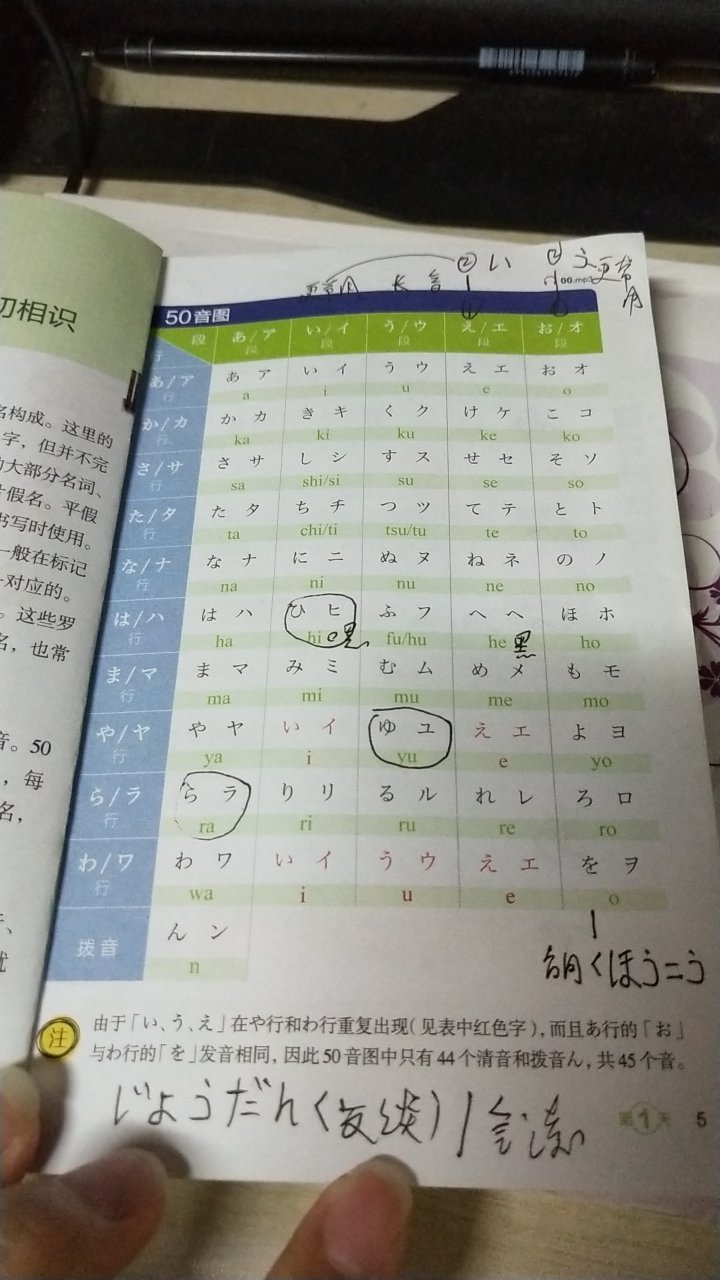 ② い ② う更常用
更常用 长音 00.mp3
初相识
50音图
段 あ/ア段 い/イ段 う/ウ段 え/エ段 お/オ段
行
あ/ア行 あ ア い イ う ウ え エ お オ
a i u e o
か/カ行 か カ き キ く ク け ケ こ コ
ka ki ku ke ko
さ/サ行 さ サ し シ す ス せ セ そ ソ
sa shi/si su se so
た/タ行 た タ ち チ つ ツ て テ と ト
ta chi/ti tsu/tu te to
な/ナ行 な ナ に ニ ぬ ヌ ね ネ の ノ
na ni nu ne no
は/ハ行 は ハ ひ ヒ ふ フ へ ヘ ほ ホ
ha hi fu/hu he 黑 ho
ま/マ行 ま マ み ミ む ム め メ も モ
ma mi mu me mo
や/ヤ行 や ヤ い イ ゆ ユ え エ よ ヨ
ya i yu e yo
ら/ラ行 ら ラ り リ る ル れ レ ろ ロ
ra ri ru re ro
わ/ワ行 わ ワ い イ う ウ え エ を ヲ
wa i u e o
拨音 ん ン
n
くほうこう
注 由于「い、う、え」在や行和わ行重复出现(见表中红色字),而且あ行的「お」
与わ行的「を」发音相同,因此50音图中只有44个清音和拨音ん,共45个音。
じょうだん
第1天 5
名构成。这里的
字,但并不完
的大部分名词、
片假名。平假
书写时使用。
一般在标记
一对应的。
。这些罗
名,也常
音。50
,每
名,